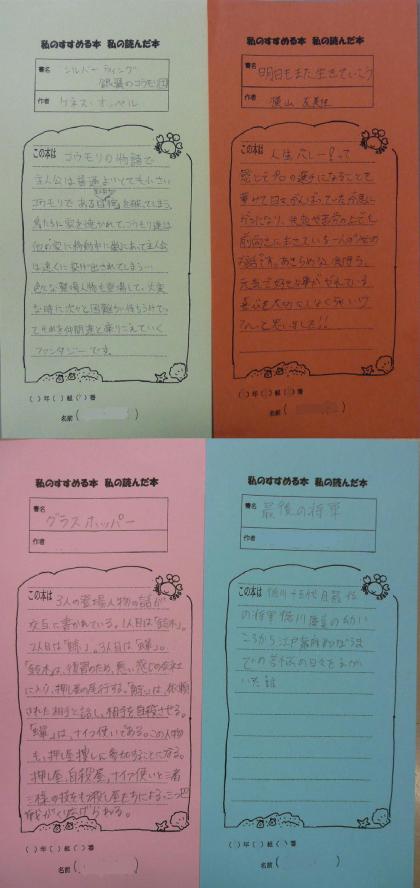 私のすすめる本 私の読んだ本
書名 シルバーウィング
銀翼のコウモリ
作者 ケネス・オッペル
この本は コウモリの物語で
主人公は普通よりとても小さい
コウモリで ある を破ってしまう。
鳥たちに家を焼かれて、コウモリ達は
他の家に移動中に嵐にあって主人公
は遠くに
色々な登場人物も登場して、大変
な時に次々と困難が待ちうけて、
それを仲間達と乗りこえていく
ファンタジーです。
( )年( )組( )番
名前( )
私のすすめる本 私の読んだ本
書名 明日もまた生きていこう
作者 横山 友美佳
この本は 人生バレー!って
プロの選手になることを
夢みて日々がんばっていたが
前向きに生きている一人の女性の
お話です。あきらめない気持ち、
元気で好きな事ができている
と思いました!!
( )年( )組( )番
名前( )
私のすすめる本 私の読んだ本
書名 グラスホッパー
作者
この本は 3人の登場人物の話が
交互に書かれている。1人目は「鈴木」。
2人目は「鯨」。3人目は「蝉」。
「鈴木」は、復讐のため、悪い感じの会社
に入り、押し屋の尾行する。「鯨」は、依頼
された相手と話し、相手を自殺させる。
「蝉」は、ナイフ使いである。この人物
も、押し屋捜しに参加することになる。
押し屋、自殺屋、ナイフ使いと三者
三様の技をもつ殺し屋たちによる三つ巴
戦がくり広げられる。
( )年( )組( )番
名前( )
私のすすめる本 私の読んだ本
書名 最後の将軍
作者
この本は 徳川十五代目最後
の将軍徳川慶喜の小さい
ころから、江戸幕府が
での苦悩の日々をえが
いた話
( )年( )組( )番
名前( )